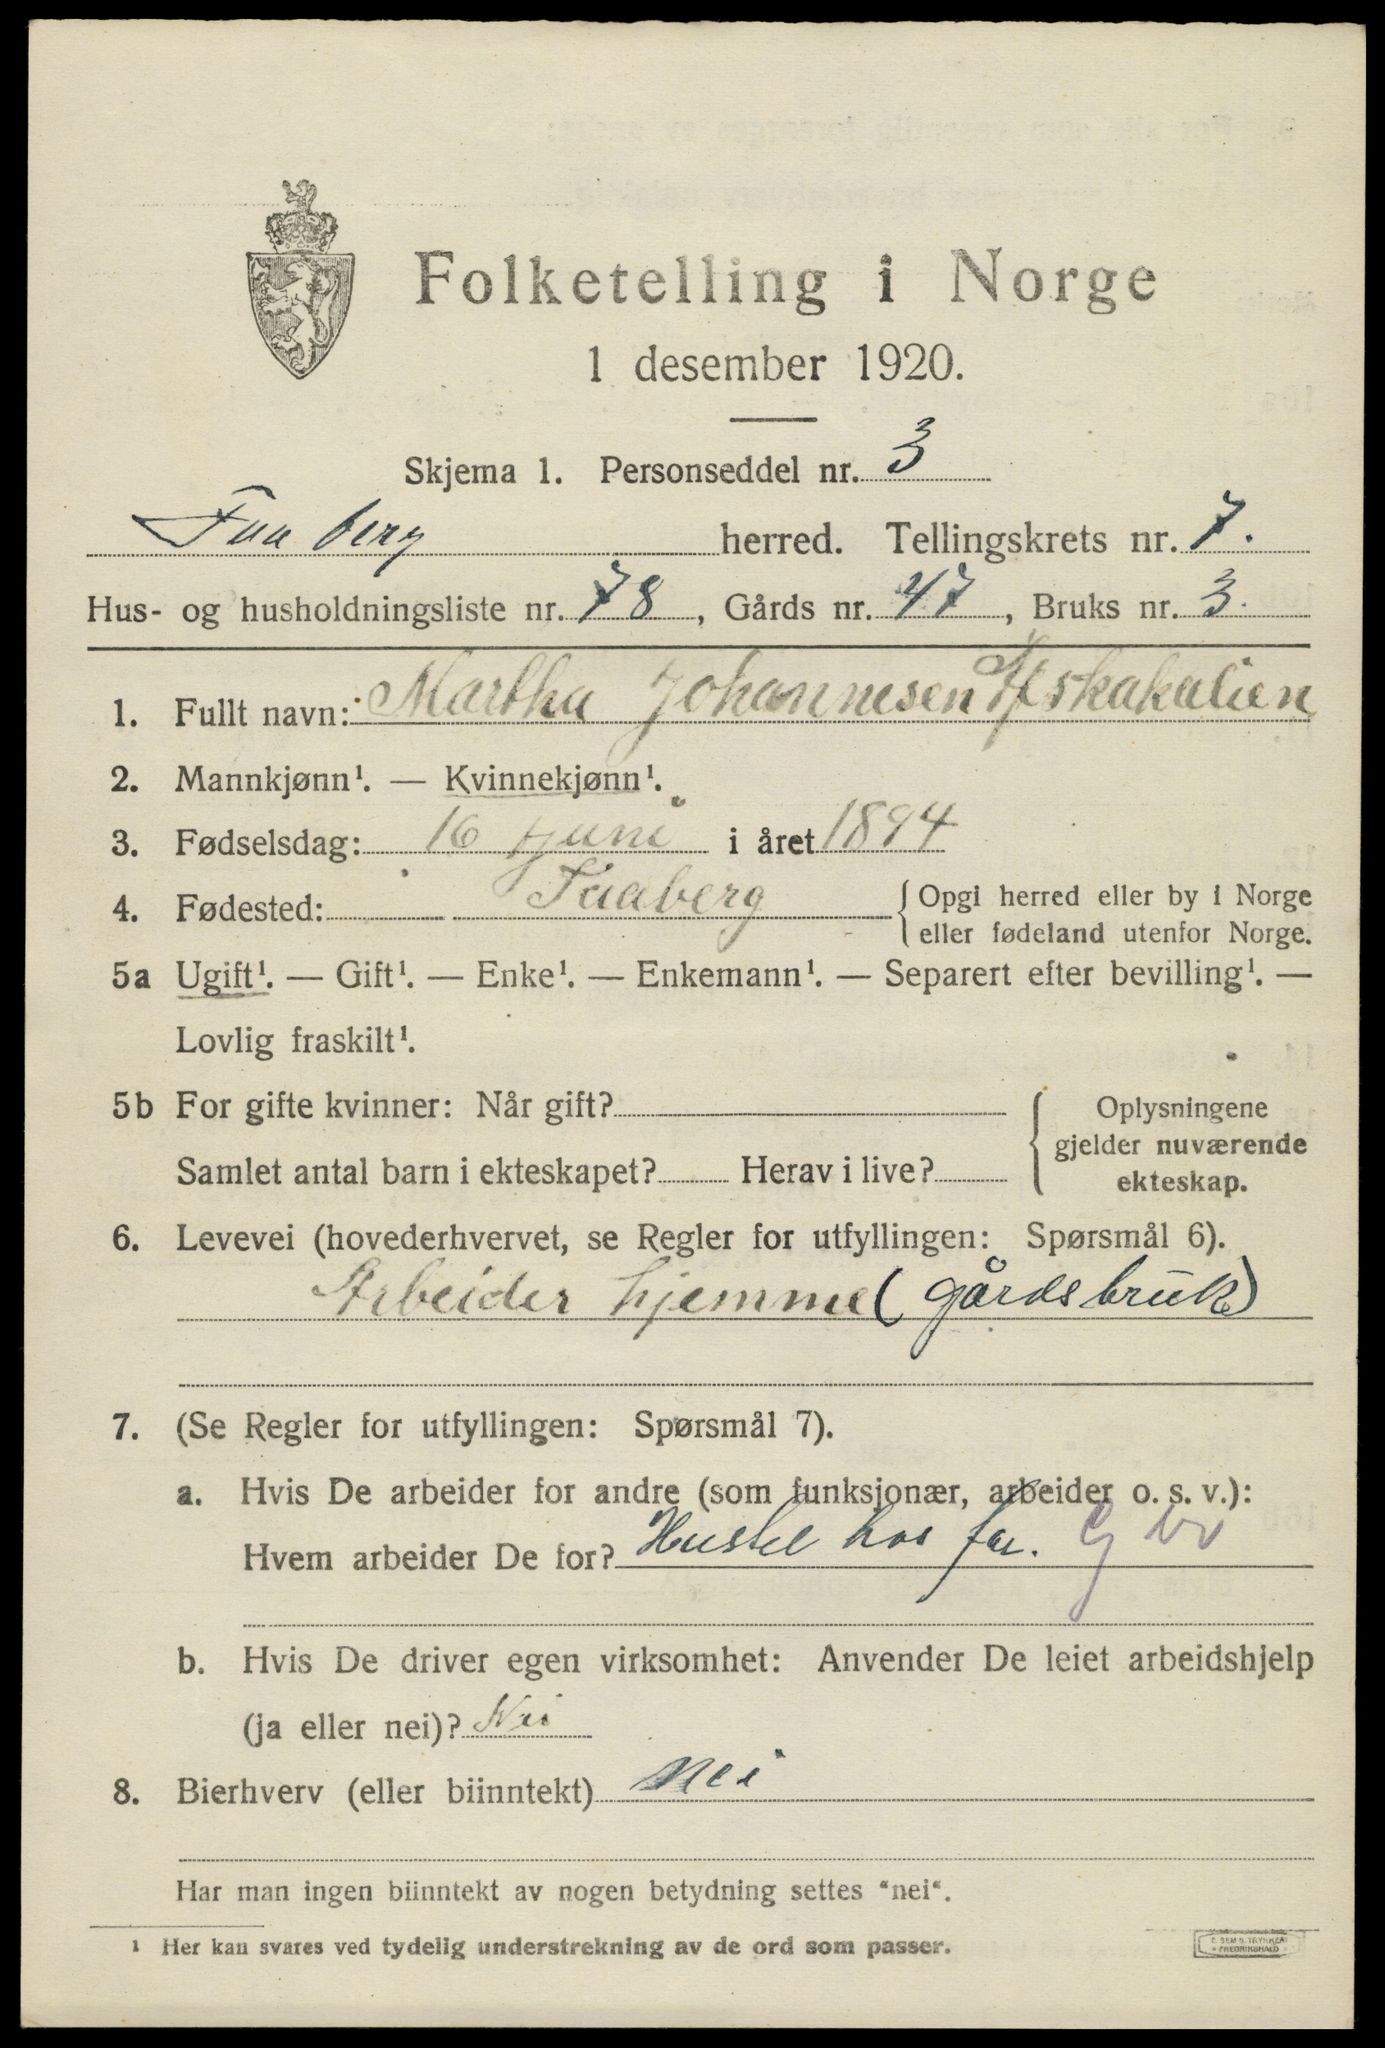 Folketelling i Norge
1 desember 1920.
Skjema 1. Personseddel nr. 3
Faaberg herred. Tellingskrets nr. 7.
Hus- og husholdningsliste nr. 78, Gårds nr. 47, Bruks nr. 3.
1. Fullt navn: Martha Johannesen
2. Mannkjønn¹. — Kvinnekjønn¹.
3. Fødselsdag: 16 juni i året 1894
4. Fødested: Faaberg {Opgi herred eller by i Norge
eller fødeland utenfor Norge.
5a Ugift¹. — Gift¹. — Enke¹. — Enkemann¹. — Separert efter bevilling¹. —
Lovlig fraskilt¹.
5b For gifte kvinner: Når gift? {Oplysningene
gjelder nuværende
Samlet antal barn i ekteskapet? Herav i live? ekteskap.
6. Levevei (hovederhvervet, se Regler for utfyllingen: Spørsmål 6).
Arbeider hjemme (gårdsbruk)
7. (Se Regler for utfyllingen: Spørsmål 7).
a. Hvis De arbeider for andre (som funksjonær, arbeider o. s. v.):
Hvem arbeider De for? Hustel hos far.
b. Hvis De driver egen virksomhet: Anvender De leiet arbeidshjelp
(ja eller nei)? Nei
8. Bierhverv (eller biinntekt) Nei
Har man ingen biinntekt av nogen betydning settes "nei".
¹ Her kan svares ved tydelig understrekning av de ord som passer.